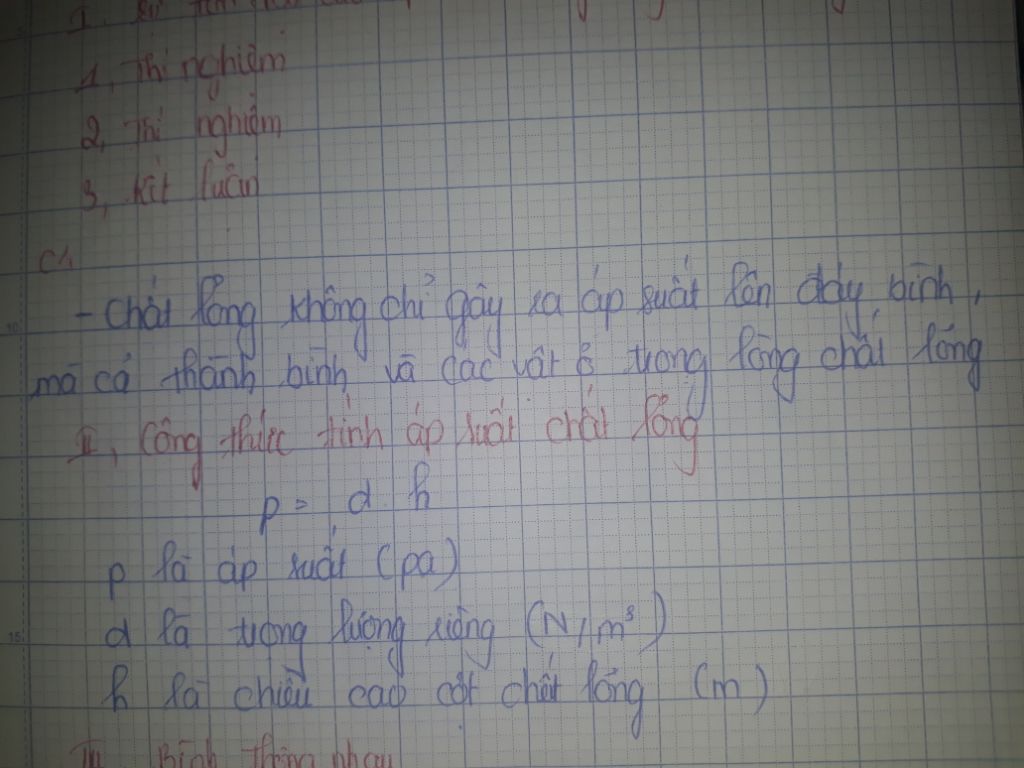 1, Thí nghiệm
2, Thí nghiệm
3, Kết luận
C4
- Chất lỏng không chỉ gây ra áp suất lên đáy bình,
mà cả thành bình và các vật ở trong lòng chất lỏng
II, Công thức tính áp suất chất lỏng
p = d. h
p là áp suất (pa)
d là trọng lượng riêng (N/m³)
h là chiều cao cột chất lỏng (m)
III Bình thông nhau